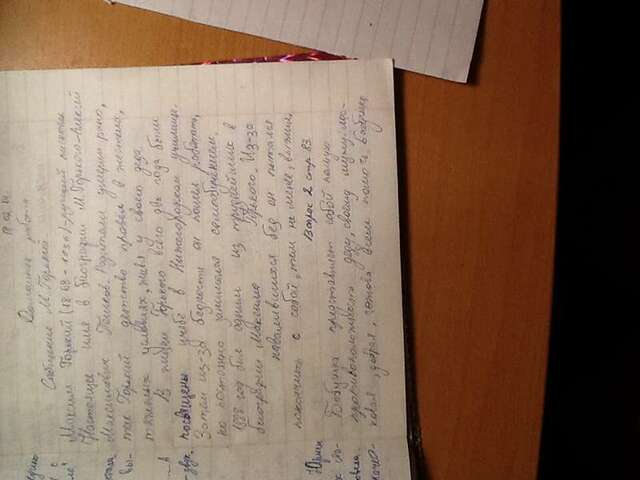 19.02.14.
Домашняя работа
Сообщение М. Горький
Максим Горький (1868 - 1936) - русский писатель
Настоящее имя в биографии М. Горького - Алексей
Максимович Пешков. Родители умерли рано,
так Горький детство провёл в жестоких,
тяжёлых условиях, живя у своего деда.
В жизни Горького всего два года были
посвящены учебе в Нижегородском училище.
Затем из-за бедности он пошел работать,
но постоянно занимался самообучением.
1888 год был одним из труднейших в
биографии Максима Горького. Из-за
навалившихся бед он пытался
покончить с собой, тем не менее, выжил.
Вопрос 2 стр 83
Бабушка представляет собой полную
противоположность деду, своему мужу: лас-
ковая, добрая, готова всем помочь. Бабушка
вы-
в